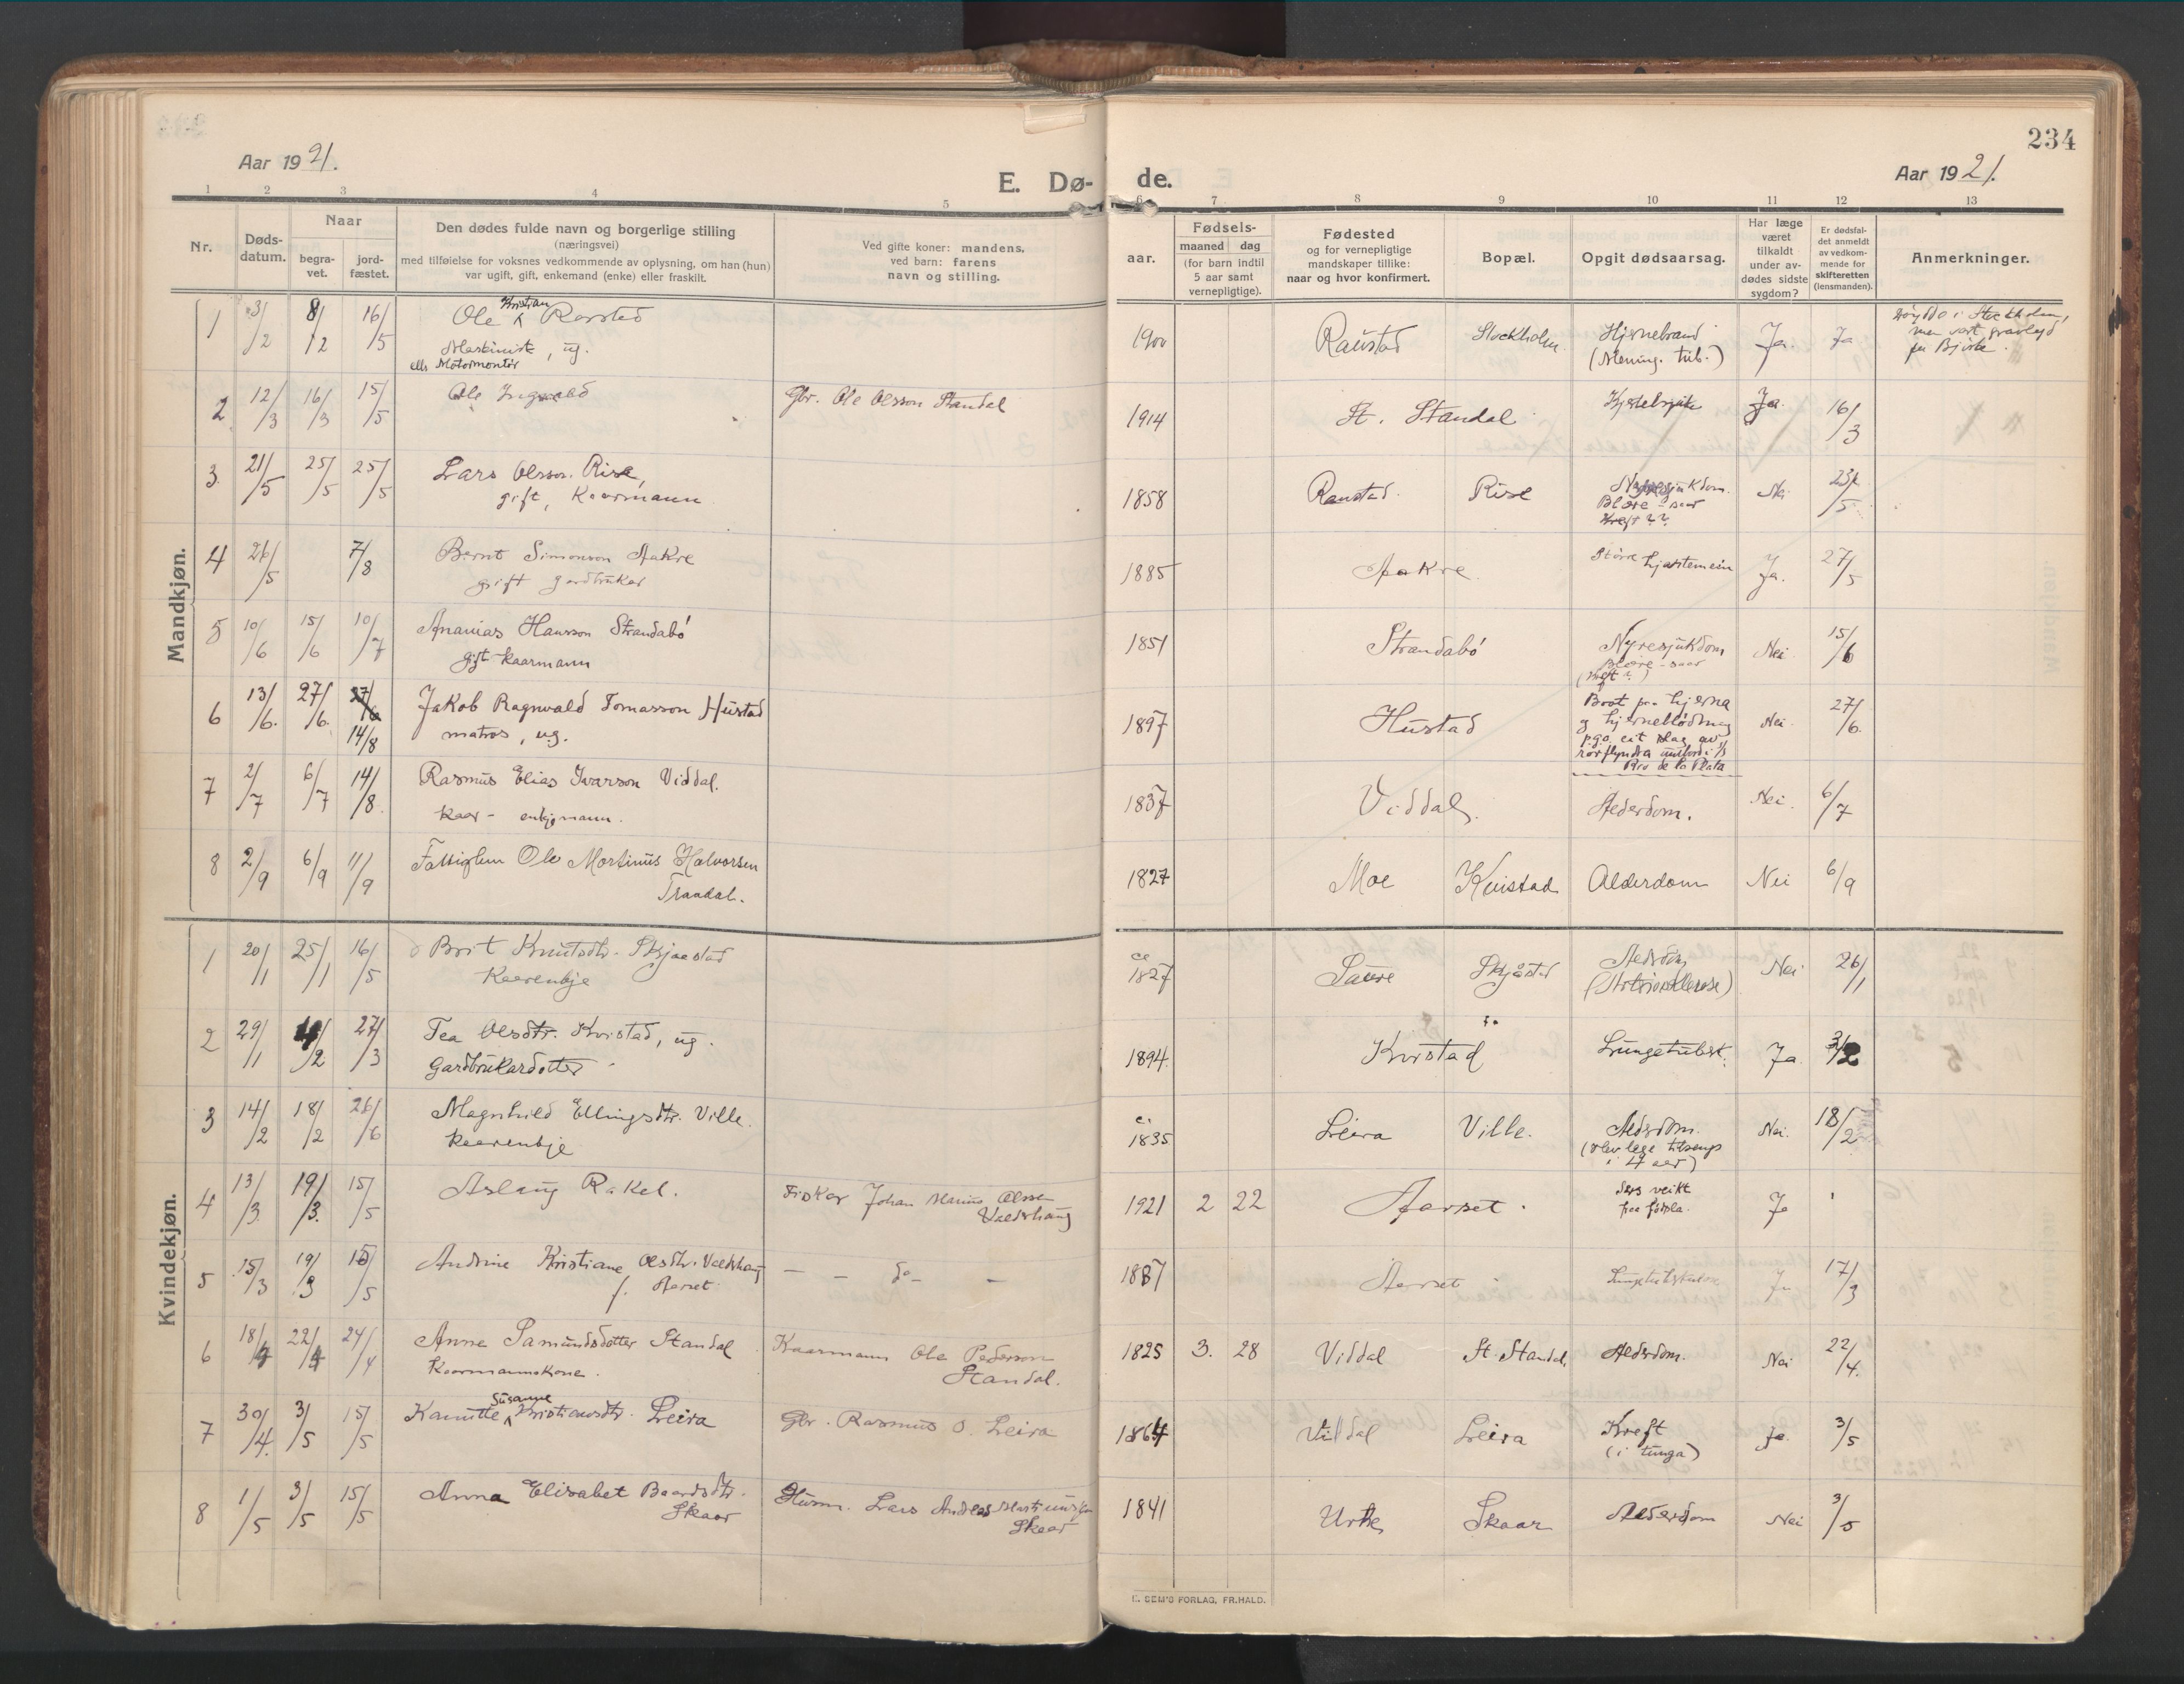 234
Aar 1921.
E. Dø- de.
Aar 1921.
1 2 3 4 5 6 7 8 9 10 11 12 13
Nr.
Døds-
datum.
Naar
begra-
vet.
jord-
fæstet.
Den dødes fulde navn og borgerlige stilling
(næringsvei)
med tilføielse for voksnes vedkommende av oplysning, om han (hun)
var ugift, gift, enkemand (enke) eller fraskilt.
Ved gifte koner: mandens,
ved barn: farens
navn og stilling.
Fødsels-
aar.
maaned dag
(for barn indtil
5 aar samt
vernepligtige).
Fødested
og for vernepligtige
mandskaper tillike:
naar og hvor konfirmert.
Bopæl.
Opgit dødsaarsag.
Har læge
været
tilkaldt
under av-
dødes sidste
sygdom?
Er dødsfal-
det anmeldt
av vedkom-
mende for
skifteretten
(lensmanden).
Anmerkninger.
Mandkjøn.
1 3/2 8/12 16/5 Ole Kristian Ravstad 1900 Raustad Stockholm Hjernebrand Ja. Ja i Stockholm,
Maskinist, ug. (Mening. tub.) men vart gravlagd
ell. Motormontør paa Bjørke.
2 12/3 16/3 15/5 Ole Ingvald Gbr. Ole Olsson Standal 1914 St. Standal Ja. 16/3
3 21/5 25/5 25/5 Lars Olsson Rise, 1858 Raustad Rise Nei 23/5
gift, Kaarmann Blære-saar
Kreft??
4 26/5 7/8 Bernt Simonson Aakre 1885 Aakre Større hjartemein Ja. 27/5
gift gardbruker
5 10/6 15/6 10/7 Ananias Hansson Strandabø 1851 Strandabø Nyresjukdom Nei 15/6
gift kaarmann Blære-saar
(Kreft?)
6 13/6. 27/6. 27/6 14/8 Jakob Ragnvald Tomasson Hustad 1897 Hustad Brot paa hjerna Nei 27/6.
matros, ug. og hjerneblødning
p.g.a. eit slag av
rorflyndra ombord i S/S
Rio de la Plata
7 2/7 6/7 14/8 Rasmus Elias Ivarson Viddal. 1837 Viddal. Alderdom. Nei. 6/7
Kaar- enkjemann.
8 2/9 6/9 11/9 Fattiglem Ole Martinus Halvorsen 1827 Moe Kvistad Alderdom Nei 6/9
Trandal.
Kvindekjøn.
1 20/1 25/1 16/5 Brit Knutsdtr. Skjaastad ca 1827 Saure Skjåstad Aldrdom Nei 26/1
Kaarenkje (Artriosklerose)
2 29/1 /2 27/3 Tea Olsdtr. Kvistad, ug. 1894. Kvistad Lungetuberk. Ja. 3/2
Gardbrukardotter
3 14/2 18/2 26/6 Magnhild Ellingsdtr. Ville. ca. 1835 Leira Ville. Aldrdom. Nei. 18/2
Kaarenkje tilsengs
i 4 aar)
4 13/3 19/3. 15/5 Aslaug Rakel. Fiskar Johan Marius Olsson 1921 2 22 Aarset. veikt Ja
Valderhaug fraa fødsla.
5 15/3 19/3 15/5 Andrine Kristiane Olsdtr. Valderhaug - - do - - 1887 Aarset Lungetuberkulose Ja 17/3
f. Aarset
6 18/4 22/4 24/4 Anne Samundsdotter Standal Kaarmann Ole Pederson 1825 3. 28 Viddal St. Standal Aldrdom. Nei 22/4.
Kaarmannskone. Standal.
7 30/4. 3/5 15/5 Kanutte Susanne Kristiansdtr. Leira Gbr. Rasmus O. Leira 1864 Viddal Leira Kreft Ja. 3/5
(i tunga)
8 1/5 3/5 15/5 Anna Elisabet Baardsdtr. Husm. Lars Andreas Martinusson 1841 Urke Skaar Alderdom Nei 3/5
Skaar Skaar
E. SEM'S FORLAG, FR.HALD.